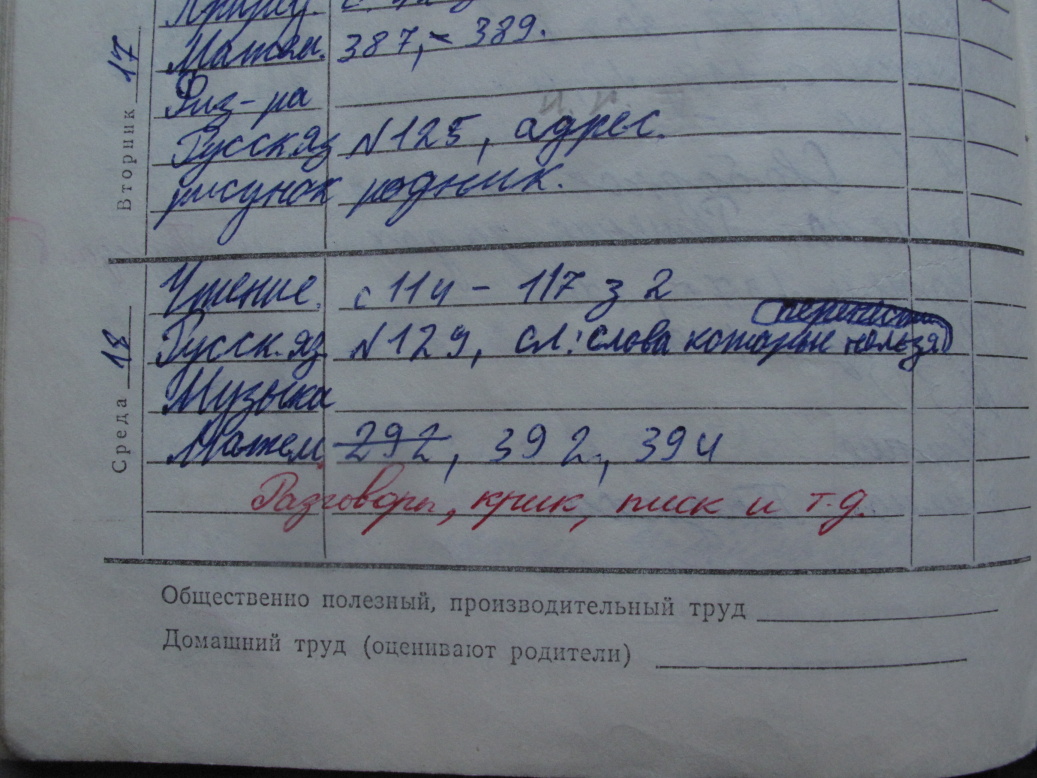 Вторник 17
Матем. 387, - 389.
Физ-ра
Русск яз №125, адрес.
рисунок родник.
Среда 18
Чтение. с 114 - 117 з 2
Русск. яз №129, сл: слова которые нельзя
Музыка
Матем. 292, 392, 394
Разговоры, крик, писк и т.д.
Общественно полезный, производительный труд
Домашний труд (оценивают родители)